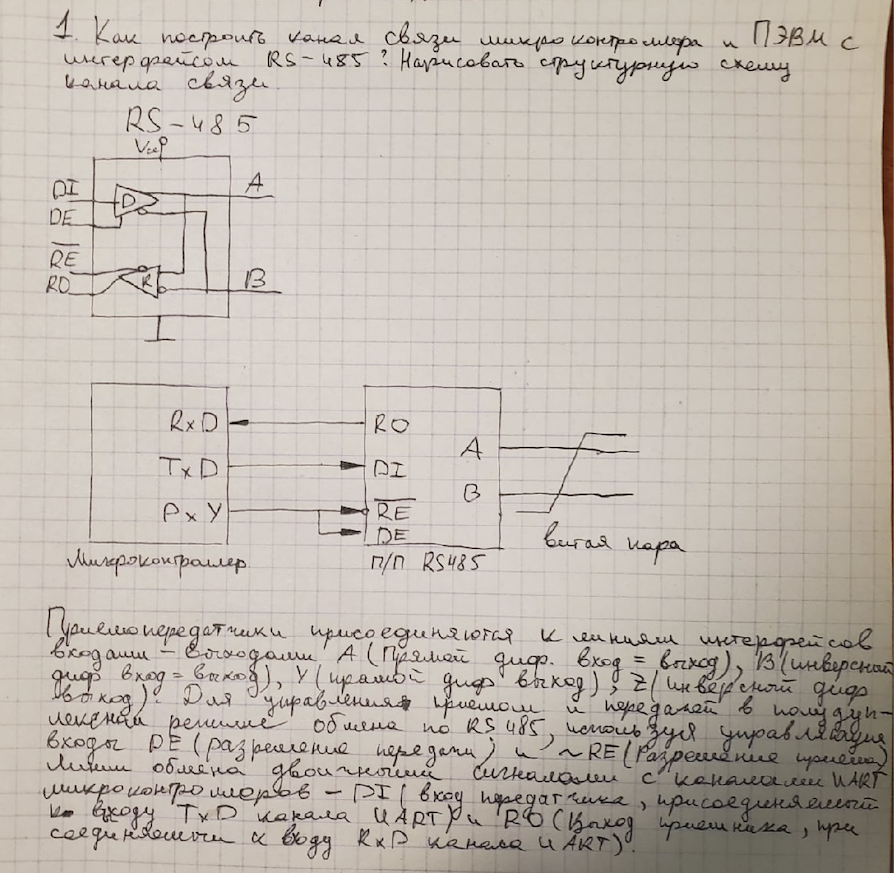 1. Как построить канал связи микроконтроллера и ПЭВМ с
интерфейсом RS-485? Нарисовать структурную схему
канала связи.
RS-485
DI
DE
RE
RO
D
R
A
B
RxD
TxD
PxY
RO
DI
RE
DE
A
B
Микроконтроллер
П/П RS485
витая пара
Приемопередатчики присоединяются к линиям интерфейсов
входами-выходами А (Прямой диф. вход = выход), В (инверсный
диф вход = выход), Y (прямой диф выход), Z (инверсный диф
выход). Для управления приемом и передачей в полудуп-
лексный режиме обмена по RS485, используя управляющие
входы DE (разрешение передачи) и ~RE (Разрешение приема)
Линии обмена двоичными сигналами с каналами UART
микроконтроллеров - DI (вход передатчика, присоединяемый
к входу TxD канала UART) и RO (Выход приемника, при
соединяемый к входу RxD канала UART).